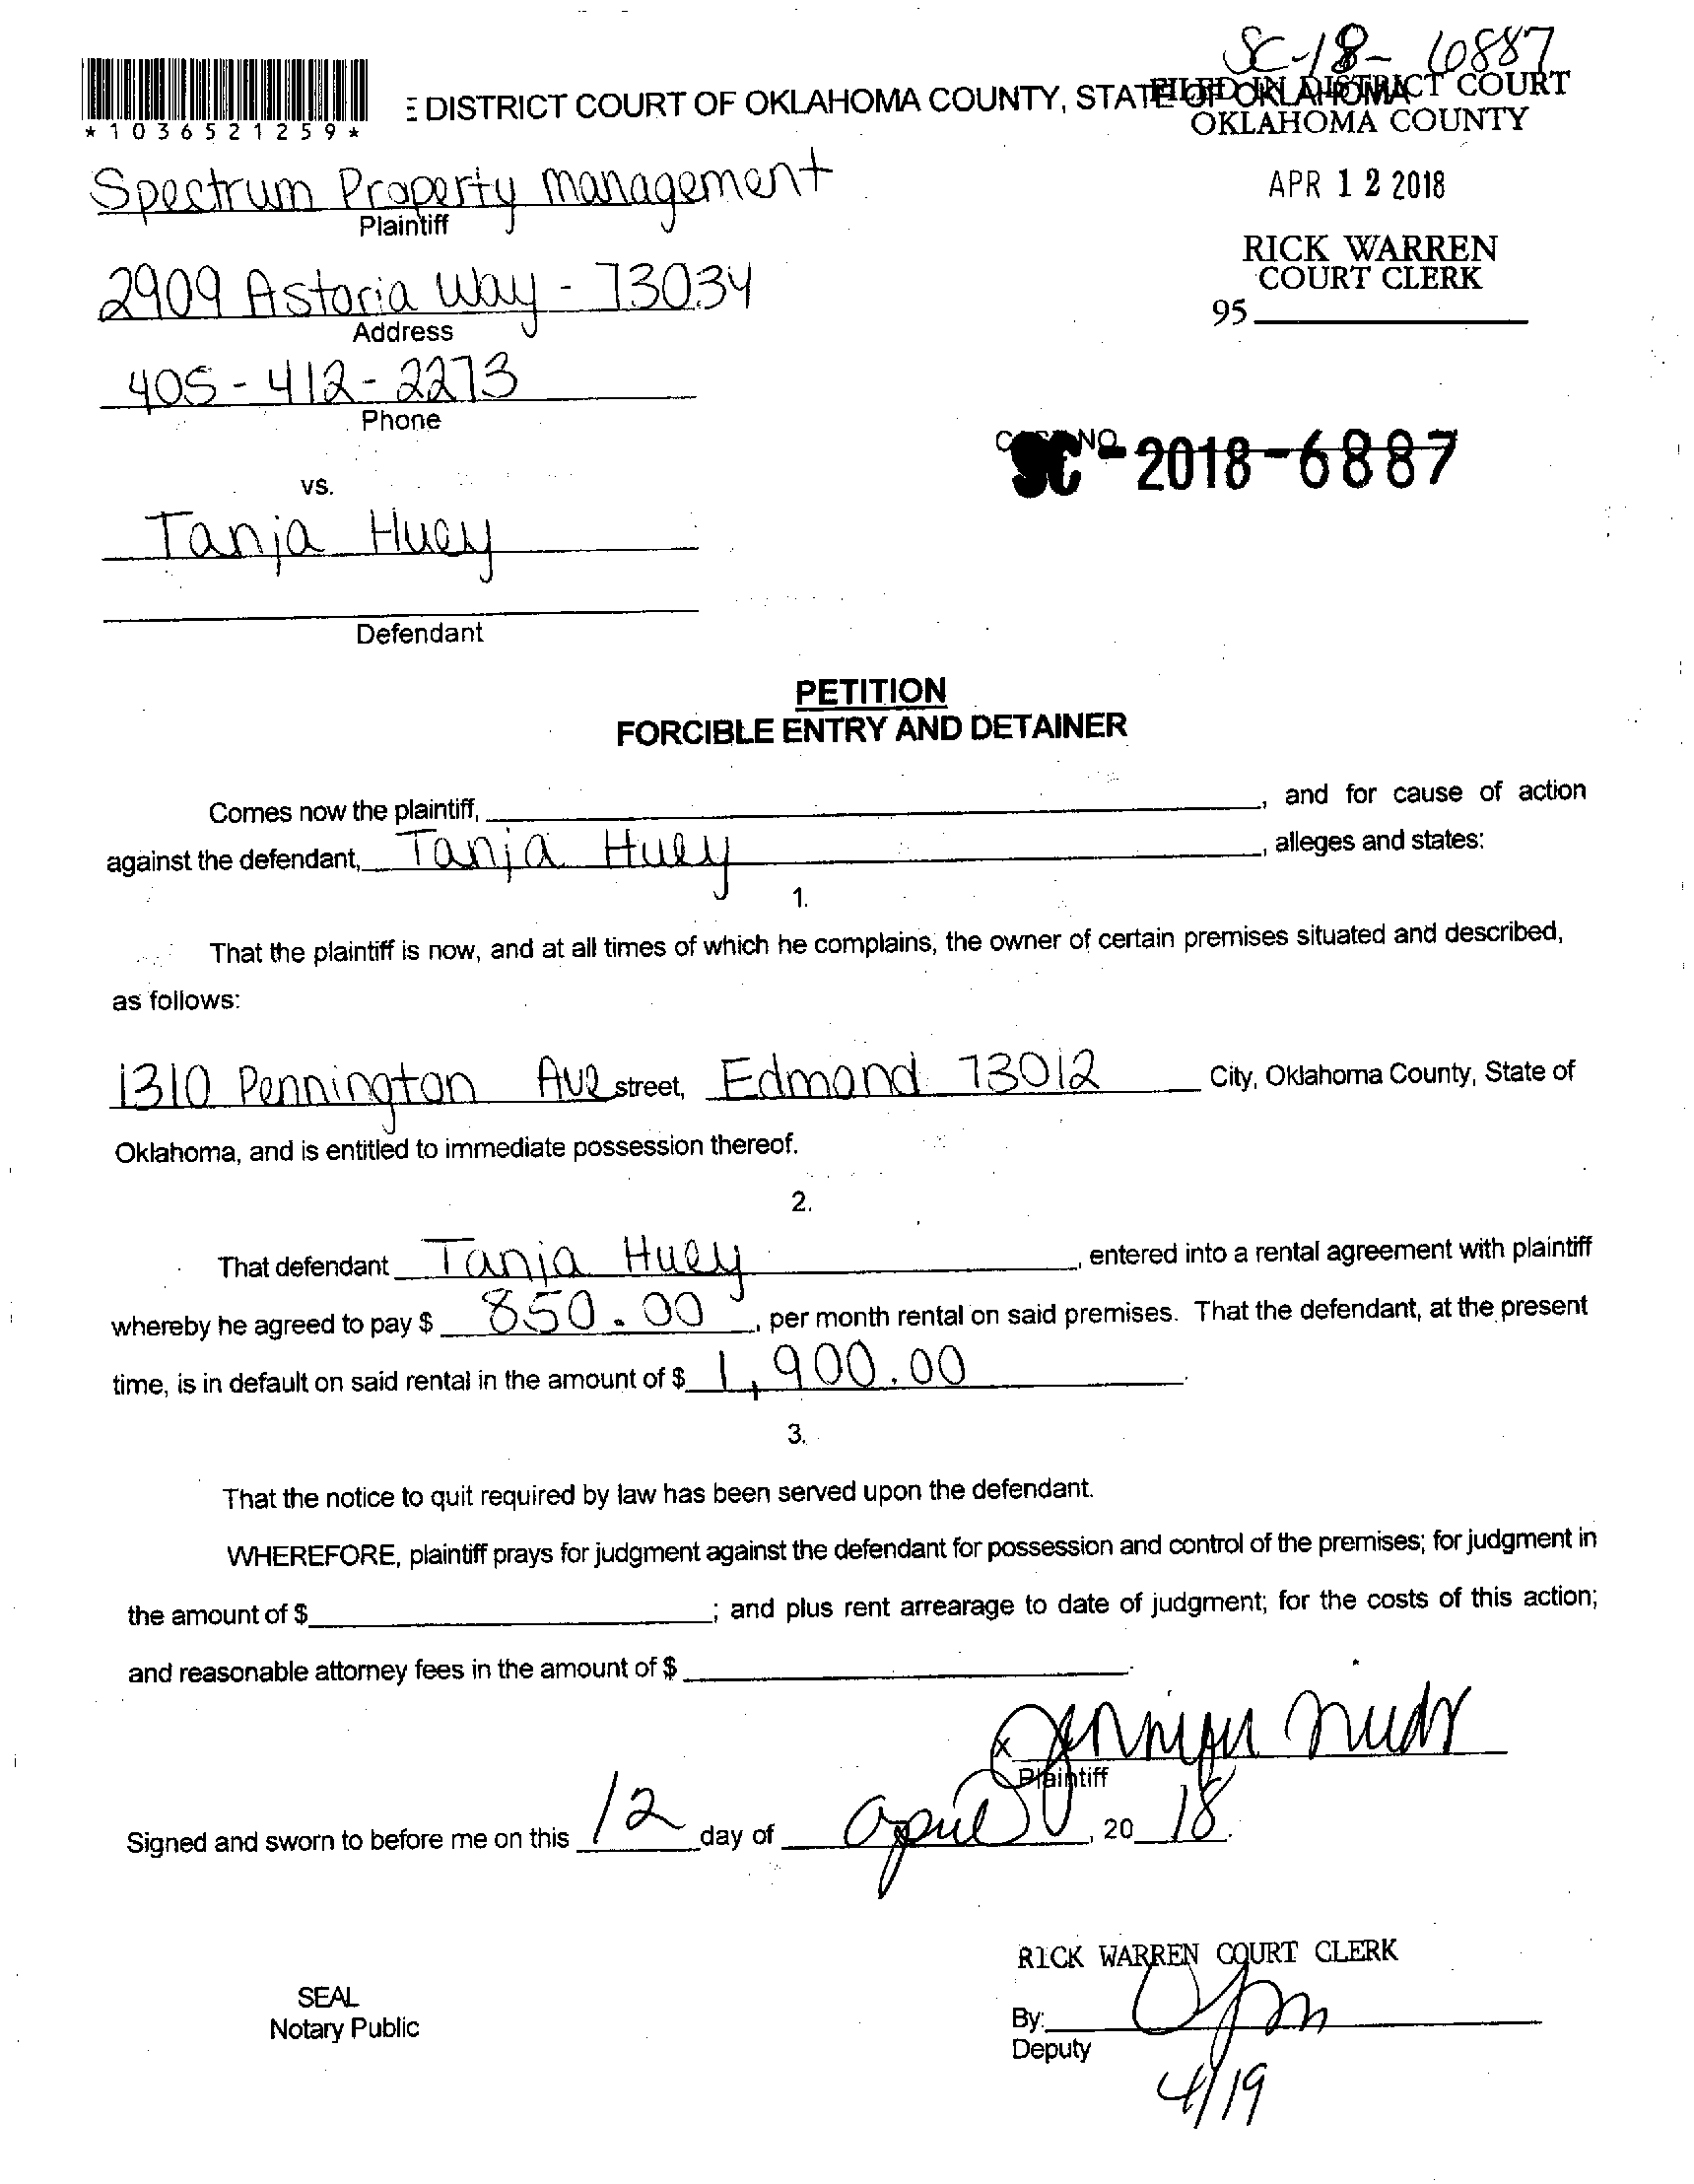 SC-18-6887
E DISTRICT COURT OF OKLAHOMA COUNTY, STATE OF OKLAHOMA
FILED IN DISTRICT COURT
OKLAHOMA COUNTY
*1036521259*
Spectrum Property Management
Plaintiff
APR 12 2018
RICK WARREN
COURT CLERK
95
2909 Astoria Way - 73034
Address
405-412-2273
Phone
NO.
SC-2018-6887
vs.
Tanja Huey
Defendant
PETITION
FORCIBLE ENTRY AND DETAINER
Comes now the plaintiff, , and for cause of action
against the defendant, Tanja Huey , alleges and states:
1.
That the plaintiff is now, and at all times of which he complains, the owner of certain premises situated and described,
as follows:
1310 Pennington Ave street, Edmond 73012 City, Oklahoma County, State of
Oklahoma, and is entitled to immediate possession thereof.
2.
That defendant Tanja Huey , entered into a rental agreement with plaintiff
whereby he agreed to pay $ 850.00 , per month rental on said premises. That the defendant, at the present
time, is in default on said rental in the amount of $ 1,900.00 .
3.
That the notice to quit required by law has been served upon the defendant.
WHEREFORE, plaintiff prays for judgment against the defendant for possession and control of the premises; for judgment in
the amount of $ ; and plus rent arrearage to date of judgment; for the costs of this action;
and reasonable attorney fees in the amount of $ .
x
Plaintiff
Signed and sworn to before me on this 12 day of April , 20 18.
RICK WARREN COURT CLERK
SEAL
Notary Public
By:
Deputy
4/19